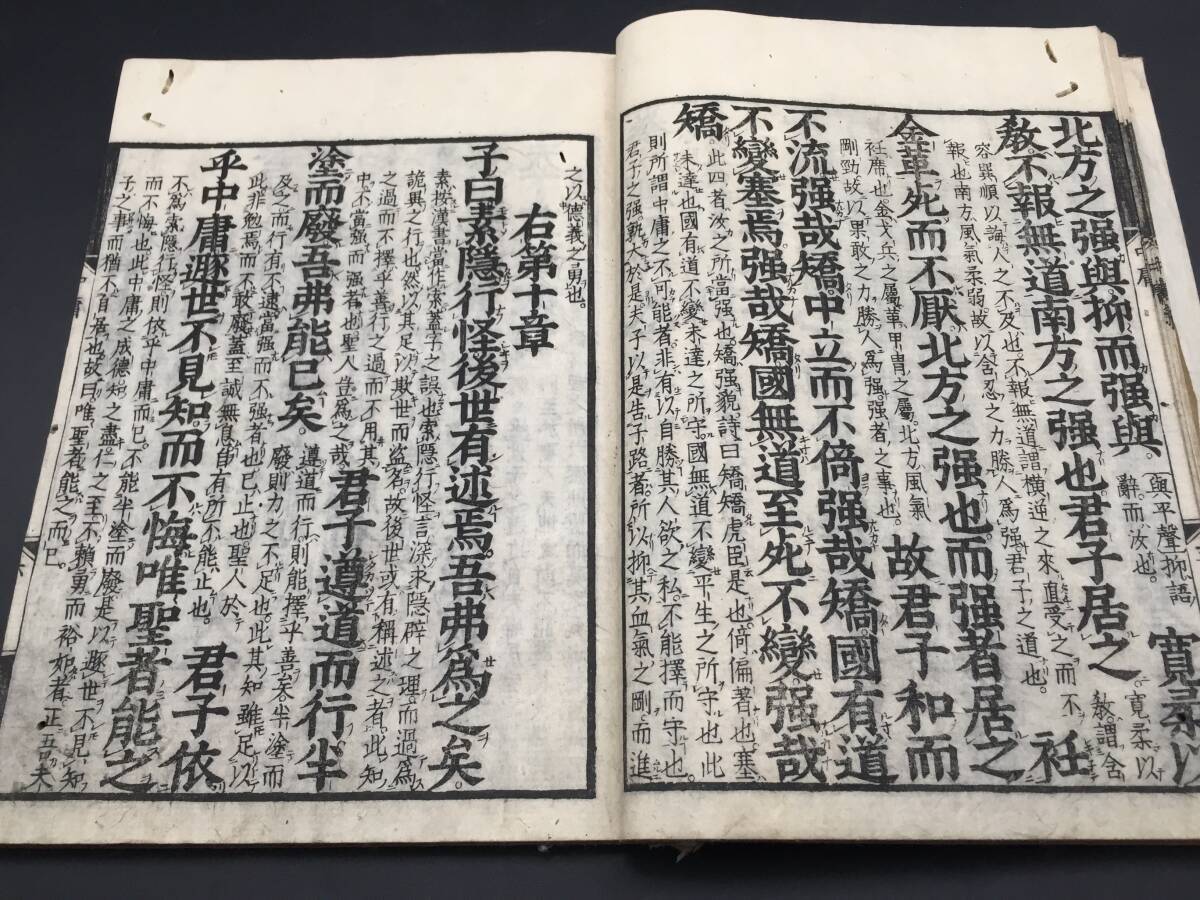 北方之强與抑而强與。與平聲抑語辭而汝也。寬柔以
敎。不報無道南方之强也君子居之寬柔以敎。謂含
容巽順以誨人之不及也。不報無道謂橫逆之來直受之而不
報也南方風氣柔弱故以含忍之力勝人爲强君子之道也。衽
金革死而不厭。北方之强也。而强者居之
衽席也金戈兵之屬。革甲冑之屬。北方風氣
剛勁故以果敢之力勝人爲强。强者之事也。故君子和而
不流强哉矯。中立而不倚强哉矯國有道
不變塞焉强哉矯國無道至死不變强哉
矯。此四者汝之所當强也矯强貌詩曰矯矯虎臣是也。倚偏著也塞
未達也國有道不變未達之所守國無道不變平生之所守也此
則所謂中庸之不可能者非有以自勝其人欲之私不能擇而守也。
君子之强孰大於是夫子以是告子路者所以抑其血氣之剛而進
之以德義之勇也。
右第十章
子曰素隱行怪後世有述焉。吾弗爲之矣。
素按漢書當作索蓋字之誤也索隱行怪言深求隱僻之理而過爲
詭異之行也然以其足以欺世而盜名。故後世或有稱述之者此知
之過而不擇乎善行之過而不用其
中。不當强而强者也聖人豈爲之哉。君子遵道而行半
塗而廢吾弗能已矣。遵道而行則能擇乎善矣。半塗而
廢則力之不足也。此其知雖足以
及之而行有不逮當强而不强者也已止也聖人於
此非勉焉而不敢廢蓋至誠無息自有所不能止也。君子依
乎中庸遯世不見知而不悔唯聖者能之
不爲索隱行怪則依乎中庸而已。不能半塗而廢是以遯世不見知
而不悔也此中庸之成德知之盡仁之至不賴勇而裕如者。正吾夫
子之事而猶不自居也。故曰唯聖者能之而已。
中庸